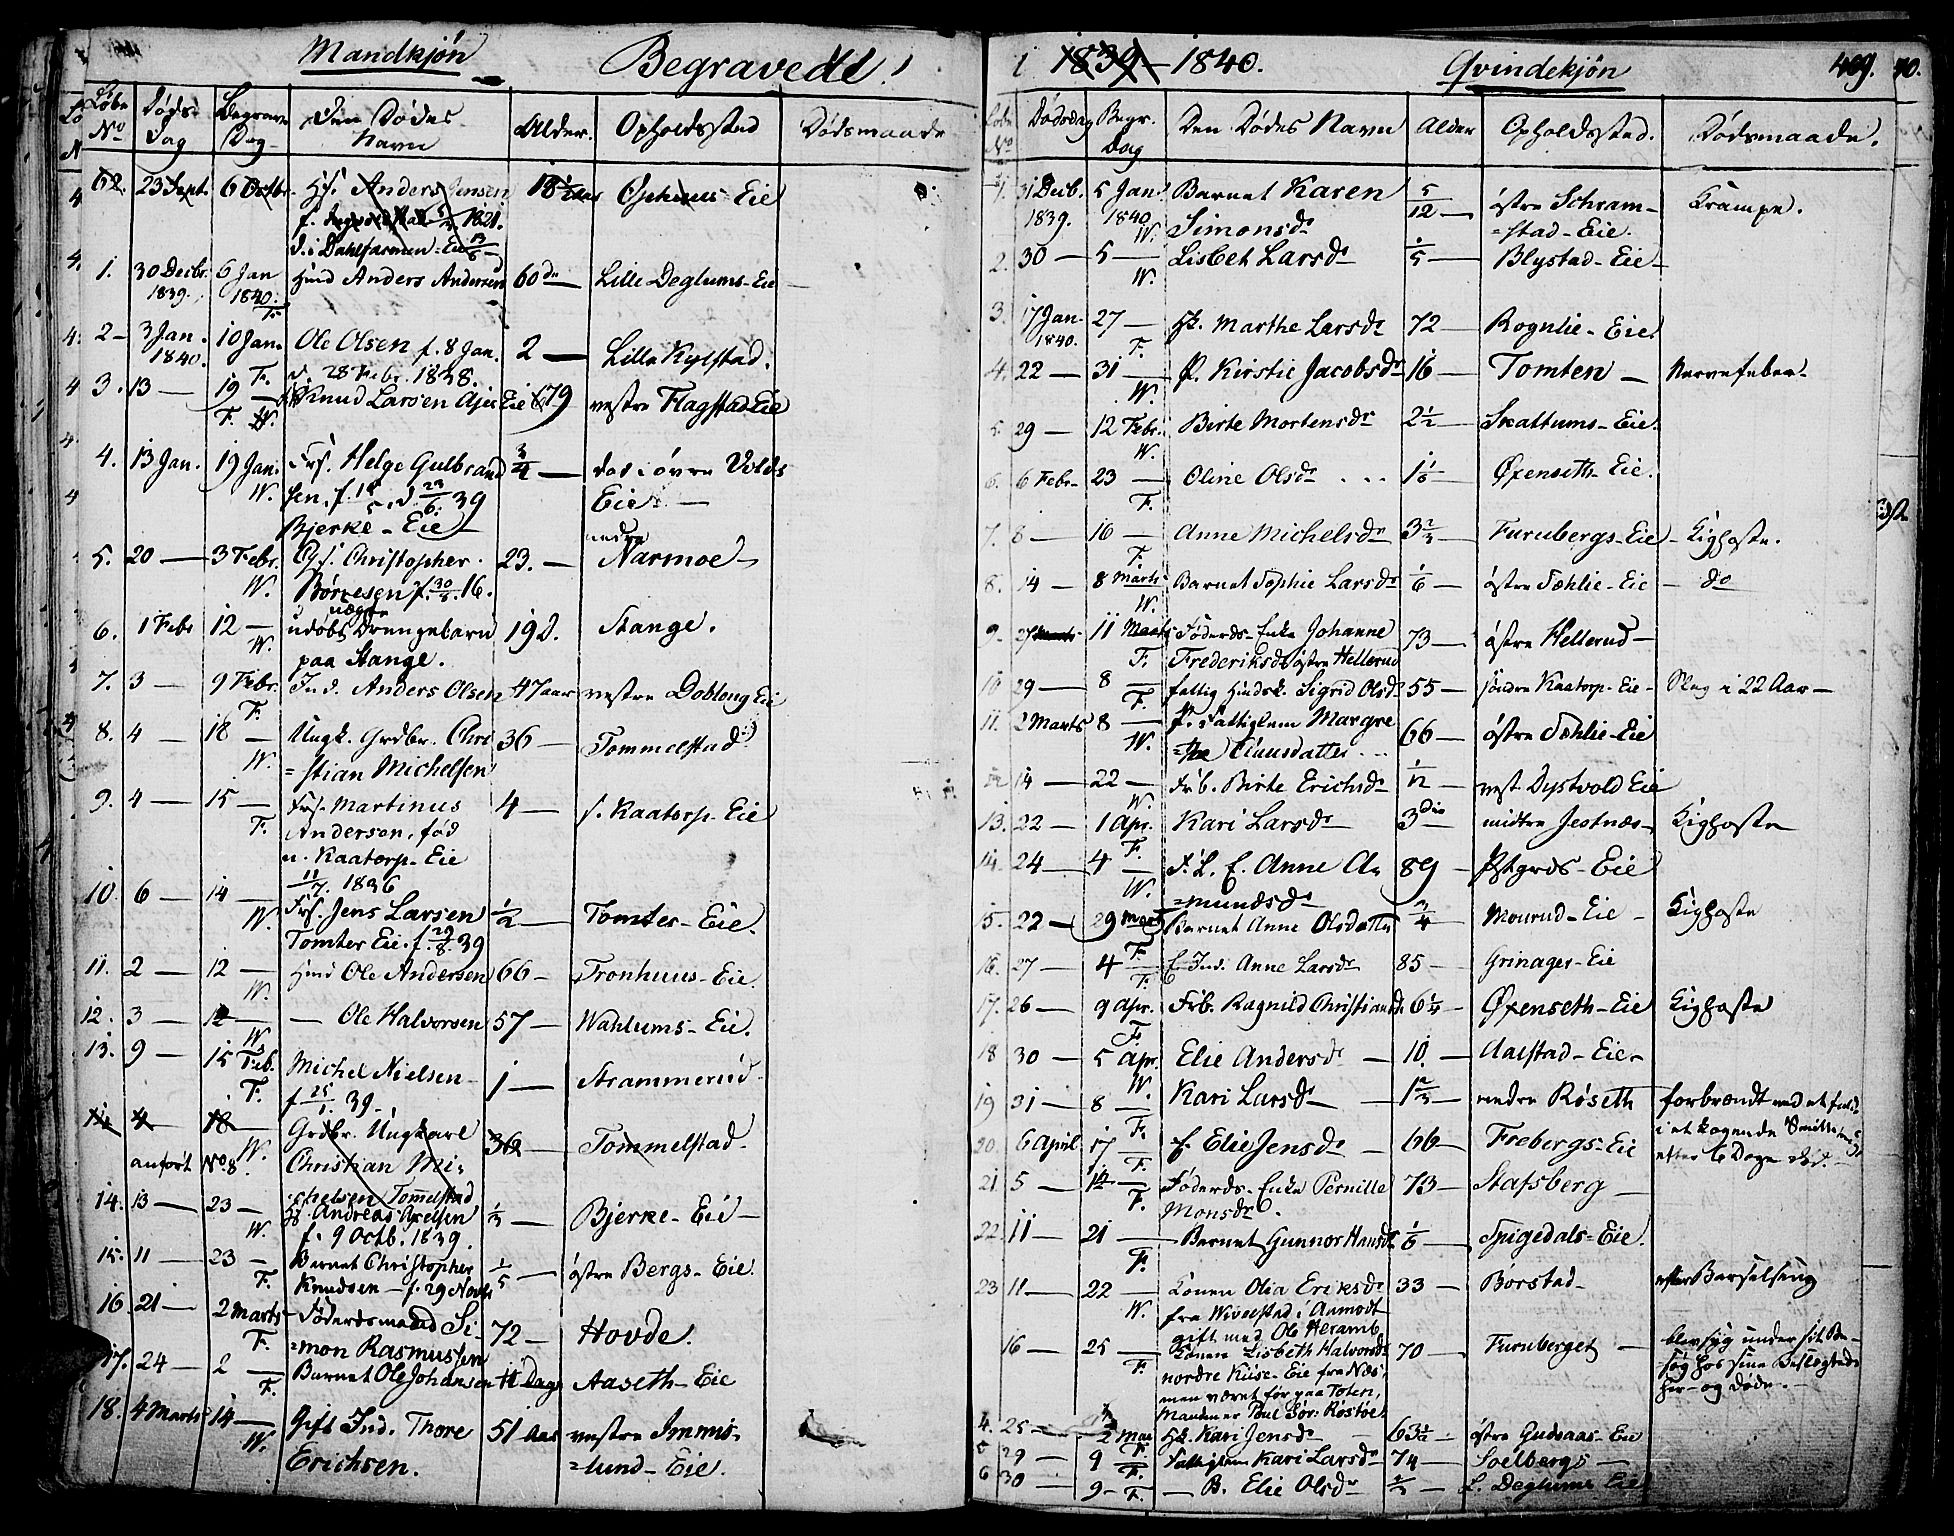 Mandkjøn
Begravede i 1839 - 1840.
Qvindekjøn
409.
Løbe No
Døds Dag
Begrav: Dag
Den Dødes Navn
Alder.
Opholdsstad
Dødsmaade
62. 23 Sept. 6 Octbr. Anders Jensen 18 1/2 Aar Ophuus-Eie
1821.
d. i Dahlsarmen-Eie
1. 30 Decbr. 6 Jan Huusd Anders Andersen 60 de Lille Deglums-Eie
1839. 1840.
2 3 Jan. 10 Jan. Ole Olsen f. 8 Jan. 2 Lille Kylstad.
1840. F. d. 28 Febr. 1838.
3. 13 19 Knud Larsen Ajer Eie 79 vestre Flagstad Eie
F. W.
4. 13 Jan. 19 Jan. Frs. Helge Gulbrand 3/4 død i øvre Volds
W. sen, f. 39 Eie
Bjerke-Eie
5. 20 3 Febr. Christopher 23. nedre Narmoe
W. Børresen f. 30/5. 16.
6. 1 Febr 12 udøbt Drengebarn 19 D. Stange.
W. paa Stange.
7. 3 9 Febr. Ind. Anders Olsen 47 aar vestre Doblong Eie
F.
8. 4 18 Ungk. Grdbr. Chri 36 Tommelstad
W. =stian Michelsen
9. 4 15 Frs. Martinus 4 s. Kaatorp-Eie
F. Andersen, fød
n. Kaatorp-Eie
11/7. 1836
10. 6 14 Frs. Jens Larsen 1/2 Tomter-Eie.
W. Tomter Eie. f. 29/8. 39
11. 2 12 Huusd Ole Andersen 66 Tronhuus-Eie.
W.
12. 3 12 Ole Halvorsen 57 Wahlums-Eie.
W.
13. 9 15 Feb. Michel Nielsen 1 Strammerud
F. f. 25/1. 39.
14 4 18 Grdbr. Ungkarl 36 Tommelstad.
anført No 8. W. Christian Mi-
chelsen Tommelstad
14. 13 23 Andreas Axelsen 1/3 Bjerke-Eie
W. f. 9 Octb. 1839.
15. 11 23 Barnet Christopher 1/5 østre Bergs-Eie.
F. Knudsen f. 29 Novbr
16. 21 2 Marts Føderdsmand Si- 72 Hovde.
F. =mon Rasmussen
17. 24 2 Barnet Ole Johansen 11 Dage Aaseth-Eie
F.
18. 4 Marts 14 Gift Ind. Thore 51 Aar vestre Immis-
W. Erichsen. =lund-Eie.
Dødsdag
Begr. Dag
Den Dødes Navn
Alder
Opholdsstad.
Dødsmaade.
1. 31 Decb. 5 Jan. Barnet Karen 5/12 østre Schram- Krampe.
1839. 1840 W. Simonsdr =stad-Eie.
2. 30 5 Lisbet Larsdr 1/5 Blystad-Eie
W.
3. 17 Jan. 27 Marthe Larsdr 72 Rognlie-Eie
1840. F.
4. 22 31 P. Kirstie Jacobsdr 16 Tomten Nervefeber
W.
5. 29 12 Febr. Birte Mortensdr 2 1/2 Skattums-Eie.
W.
6. 6 Febr. 23 Oline Olsdr 1 1/6 Øxenseth-Eie.
F.
7. 8 16 Anne Michelsdr 3 2/3 Furubergs-Eie Kighoste.
F.
8. 14 8 Marts Barnet Sophie Larsdr 1/6 østre Sæhlie-Eie do
W.
9. 27 11 Marts Føderds-Enke Johanne 73 østre Hellerud
F. Frederiksdr østre Hellerud
10 29 8 fattig Huusk. Sigrid Olsdr 55 søndre Kaatorp-Eie Slag i 22 Aar
F.
11. 2 Marts 8 Fattiglem Margre 66 østre Sæhlie-Eie
W. =the Clausdatter
12 14 22 Frb. Birte Erichsdr 1/12 vest. Dystvold Eie
W.
13. 22 1 Apr. Kari Larsdr 3 midtre Jestnæs Kighoste
F.
14. 24 4 F. L. E. Anne A- 89 Pstgrds-Eie
W. =mundsdr
15. 22 29 Marts Barnet Anne Olsdatter 3/4 Mourud-Eie Kighoste
F.
16. 27 4 E. Ind. Anne Larsdr 85 Grinager-Eie
F.
17. 26 9 Apr. Frb. Ragnild Christiansdr 6 1/4 Øxenseth-Eie Kighoste
F.
18 30 5 Apr Elie Andersdr 10. Aalstad-Eie
W.
19 31 8 Kari Larsdr 1 2/3 nedre Røseth forbrændt ved at falde
F. i et kogende
20. 6 April 17 f. Elie Jensdr 66 Frebergs-Eie efter 6 Dage død.
F.
21 5 12 Føderds-Enke Pernille 73 Stafsberg
F. Monsdr.
22. 11 21 Barnet Gunnor Hansdr 1/6 Spigedals-Eie.
F.
23 11 22 Konen Olia Eriksdr 33 Borstad efter Barselseng
W. fra Wivelstad i Aamodt
gift med Ole Heramb
16 25 Konen Lisbeth Halvorsdr 70 Furuberget blev syg under sit Be-
F. nordre Kiise-Eie fra Næs, søg hos sine Beslegtede
men været før paa Toten, her og døde.
Manden er Poul Sør. Røstøe.
4. 25 2 Mai Kari Jensdr 63 1/2 østre Gudsaas-Eie
F.
5 29 9 Fattiglem Kari Larsdr 74 Soelbergs
F.
6 30 9 B. Elie Olsdr L. Deglums Eie
F.